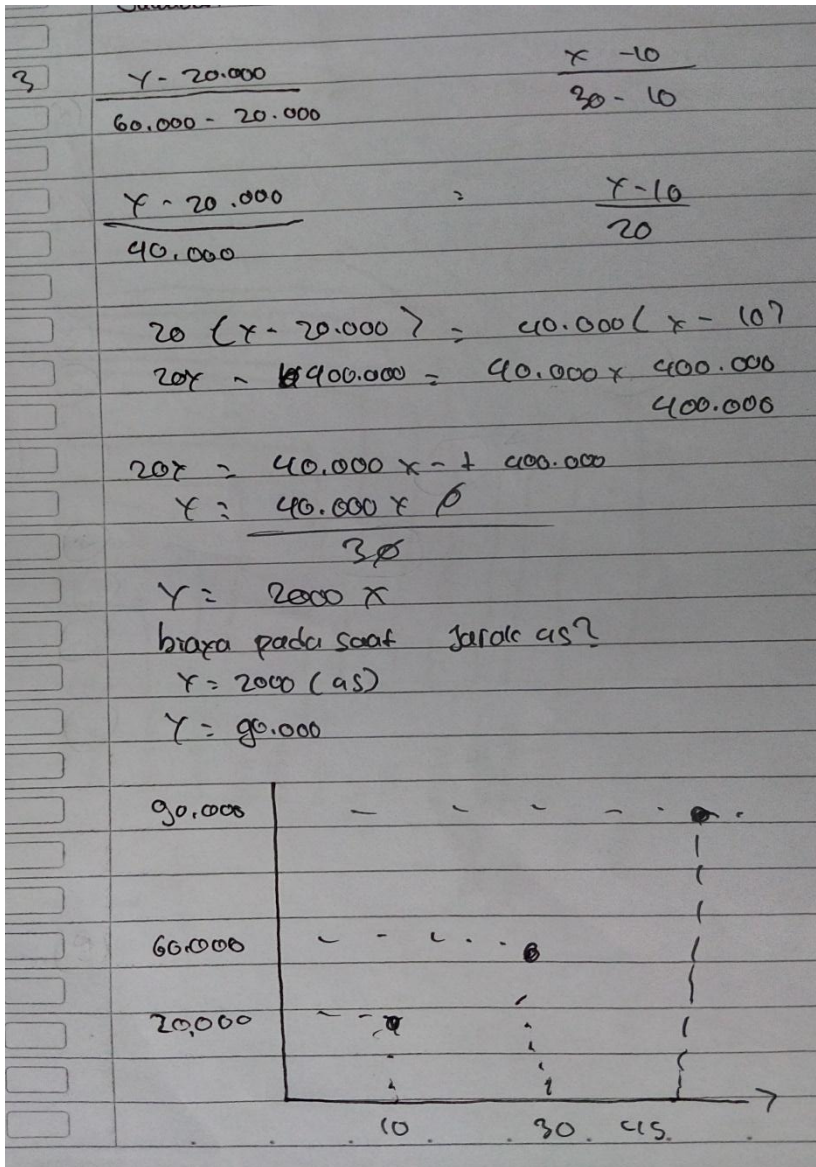 3 Y - 20.000 x - 10
60.000 - 20.000 30 - 10
Y - 20.000 = Y - 10
40.000 20
20 (Y - 20.000) = 40.000 (x - 10)
20Y - 400.000 = 40.000 x 400.000
400.000
20Y = 40.000 x - + 400.000
Y = 40.000 x 0
30
Y = 2000 x
biaya pada saat Jarak 45?
Y = 2000 (45)
Y = 90.000
90.000
60.000
20.000
10 30 45